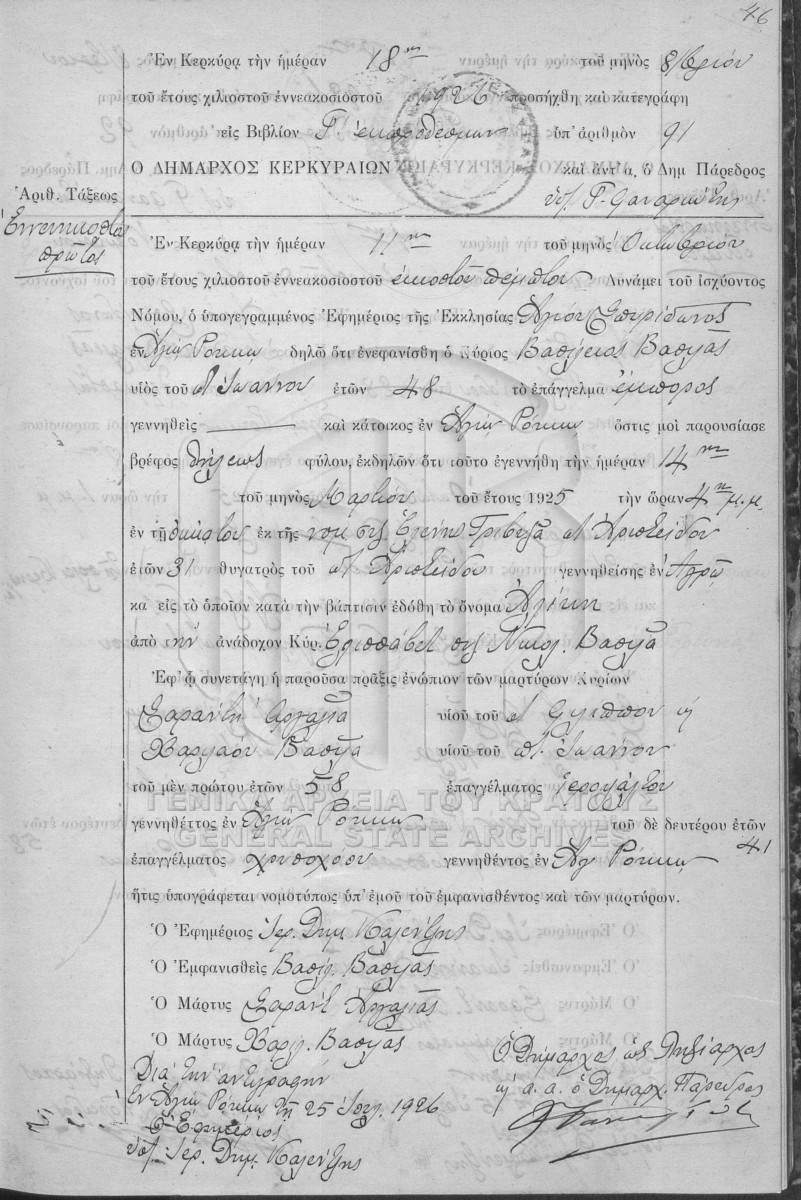 46
Ἐν Κερκύρᾳ τὴν ἡμέραν 18ην τοῦ μηνὸς 8/βρίου
τοῦ ἔτους χιλιοστοῦ ἐννεακοσιοστοῦ 1926 προσήχθη καὶ κατεγράφη
εἰς Βιβλίον Γ. ἐκπροθέσμων ὑπ' ἀριθμὸν 91
Ο ΔΗΜΑΡΧΟΣ ΚΕΡΚΥΡΑΙΩΝ καὶ ἀντ' α, ὁ Δημ Πάρεδρος
Ἀριθ. Τάξεως
Ἐννενηκοστὴ
πρώτη
Ἐν Κερκύρᾳ τὴν ἡμέραν 11ην τοῦ μηνὸς Ὀκτωβρίου
τοῦ ἔτους χιλιοστοῦ ἐννεακοσιοστοῦ εἰκοστοῦ πέμπτου Δυνάμει τοῦ ἰσχύοντος
Νόμου, ὁ ὑπογεγραμμένος Ἐφημέριος τῆς Ἐκκλησίας Ἁγίου Σπυρίδωνος
ἐν Ἁγίῳ Ρόκκῳ δηλῶ ὅτι ἐνεφανίσθη ὁ Κύριος Βασίλειος Βασιλᾶς
υἱὸς τοῦ Ἰωάννου ἐτῶν 48 τὸ ἐπάγγελμα ἔμπορος
γεννηθεὶς — καὶ κάτοικος ἐν Ἁγίῳ Ρόκκῳ ὅστις μοὶ παρουσίασε
βρέφος θήλεως φύλου, ἐκδηλῶν ὅτι τοῦτο ἐγεννήθη τὴν ἡμέραν 14ην
τοῦ μηνὸς Μαρτίου τοῦ ἔτους 1925 τὴν ὥραν 4ην μ.μ.
ἐν τῇ ἐκ τῆς νομ συζ Ἑλένης Τριβυζᾶ Ἀριστείδου
ἐτῶν 31 θυγατρὸς τοῦ Ἀριστείδου γεννηθείσης ἐν
κα εἰς τὸ ὁποῖον κατὰ τὴν βάπτισιν ἐδόθη τὸ ὄνομα Ἀλίκη
ἀπὸ τὴν ἀνάδοχον Κύρ. Ἐλισσάβετ συζ Νικολ. Βασιλᾶ
Ἐφ' ᾧ συνετάγη ἡ παροῦσα πρᾶξις ἐνώπιον τῶν μαρτύρων Κυρίων
Σαράντη Ἀργαλιᾶ υἱοῦ τοῦ Φιλίππου κ
Χαριλάου Βασιλᾶ υἱοῦ τοῦ Ἰωάννου
τοῦ μὲν πρώτου ἐτῶν 58 ἐπαγγέλματος ἱεροψάλτου
ΓΕΝΙΚΑ ΑΡΧΕΙΑ ΤΟΥ ΚΡΑΤΟΥΣ
γεννηθέττος ἐν Ἁγίῳ Ρόκκῳ τοῦ δὲ δευτέρου ἐτῶν 41
GENERAL STATE ARCHIVES
ἐπαγγέλματος χρυσοχόου γεννηθέντος ἐν Ἁγ Ρόκκῳ
ἥτις ὑπογράφεται νομοτύπως ὑπ' ἐμοῦ τοῦ ἐμφανισθέντος καὶ τῶν μαρτύρων.
Ὁ Ἐφημέριος Ἱερ. Δημ. Καλεντζῆς
Ὁ Ἐμφανισθεὶς Βασίλ. Βασιλᾶς
Ὁ Μάρτυς Σαράντ Ἀργαλιᾶς
Ὁ Μάρτυς Χαρίλ. Βασιλᾶς
Διὰ τὴν ἀντιγραφὴν
Ἐν Ἁγίῳ Ρόκκῳ τῇ 25 1926
Ὁ Ἐφημέριος
Ἱερ. Δημ. Καλεντζῆς
Ὁ Δήμαρχος ὡς Ληξίαρχος
κ α. α. ὁ Δημαρχ. Πάρεδρος